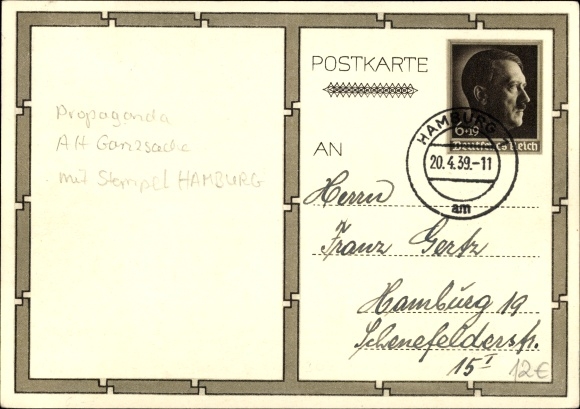 Propaganda
AH Ganzsache
mit Stempel HAMBURG
POSTKARTE
6+19
Deutsches Reich
HAMBURG
20.4.39.-11
am
AN
Herrn
Franz Gertz
Hamburg 19
Schenefelderstr.
15 I
12€